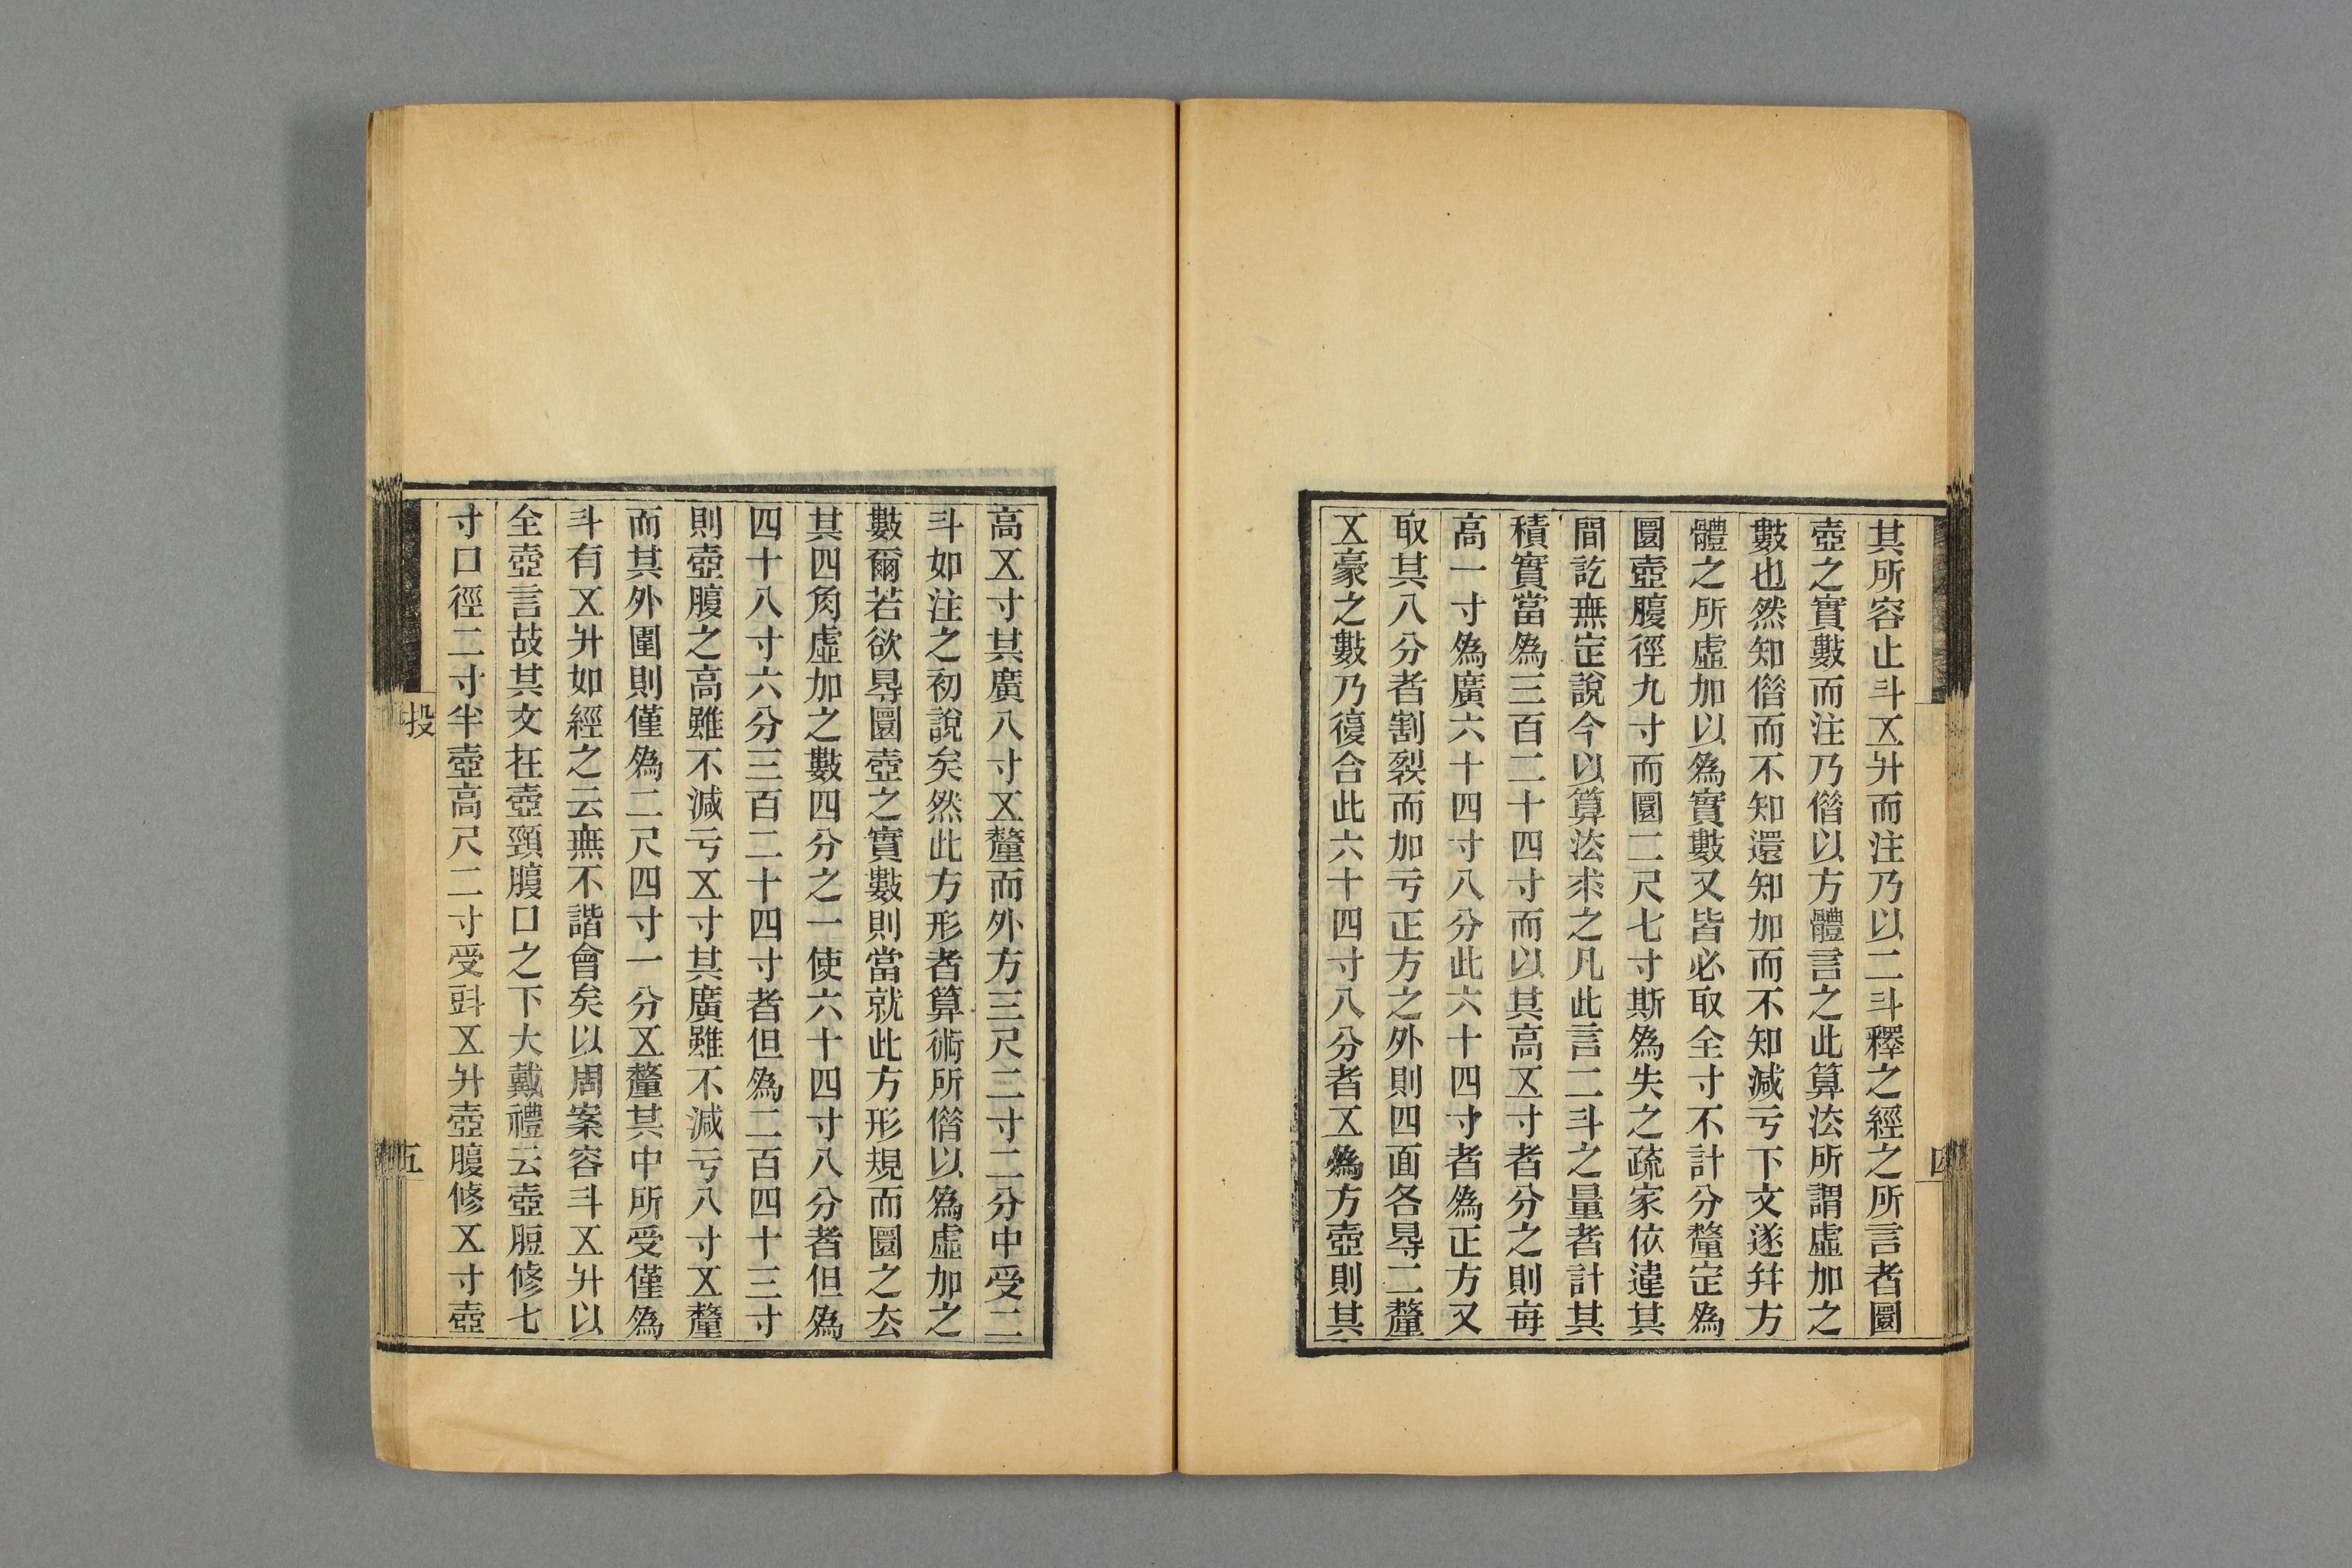 其所容止斗㐅升而注乃以二斗釋之經之所言者圜
壺之實數而注乃偕以方體言之此算法所謂虛加之
數也然知偕而不知還知加而不知減亏下文遂幷方
體之所虛加以爲實數又皆必取全寸不計分釐定爲
圜壺腹徑九寸而圜二尺七寸斯爲失之疏家依違其
間訖無定說今以算法求之凡此言二斗之量者計其
積實當爲三百二十四寸而以其高㐅寸者分之則每
高一寸爲廣六十四寸八分此六十四寸者爲正方又
取其八分者割裂而加亏正方之外則四面各㝵二釐
㐅豪之數乃復合此六十四寸八分者㐅爲方壺則其
四
高㐅寸其廣八寸㐅釐而外方三尺二寸二分中受二
斗如注之初說矣然此方形者算術所偕以爲虛加之
數爾若欲㝵圜壺之實數則當就此方形規而圜之去
其四角虛加之數四分之一使六十四寸八分者但爲
四十八寸六分三百二十四寸者但爲二百四十三寸
則壺腹之高雖不減亏㐅寸其廣雖不減亏八寸㐅釐
而其外圍則僅爲二尺四寸一分㐅釐其中所受僅爲
斗有㐅升如經之云無不諧會矣以周案容斗㐅升以
全壺言故其文在壺頸腹口之下大戴禮云壺脰修七
寸口徑二寸半壺高尺二寸受㪷㐅升壺腹修㐅寸壺
投
五